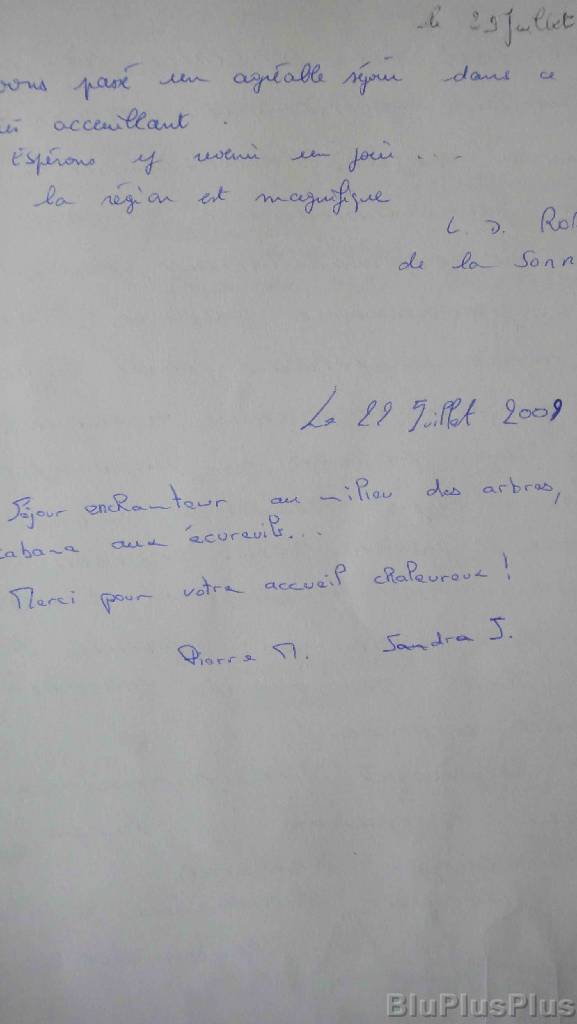 le 29 Juillet
passé un agréable séjour dans ce
acceuillant.
Espérons y revenir un jour...
la région est magnifique
L. D. Ro
de la Sonn
Le 22 Juillet 2009
Séjour enchanteur au milieu des arbres,
cabane aux écureuils...
Merci pour votre accueil chaleureux !
Pierre M. Sandra J.
BluPlusPlus